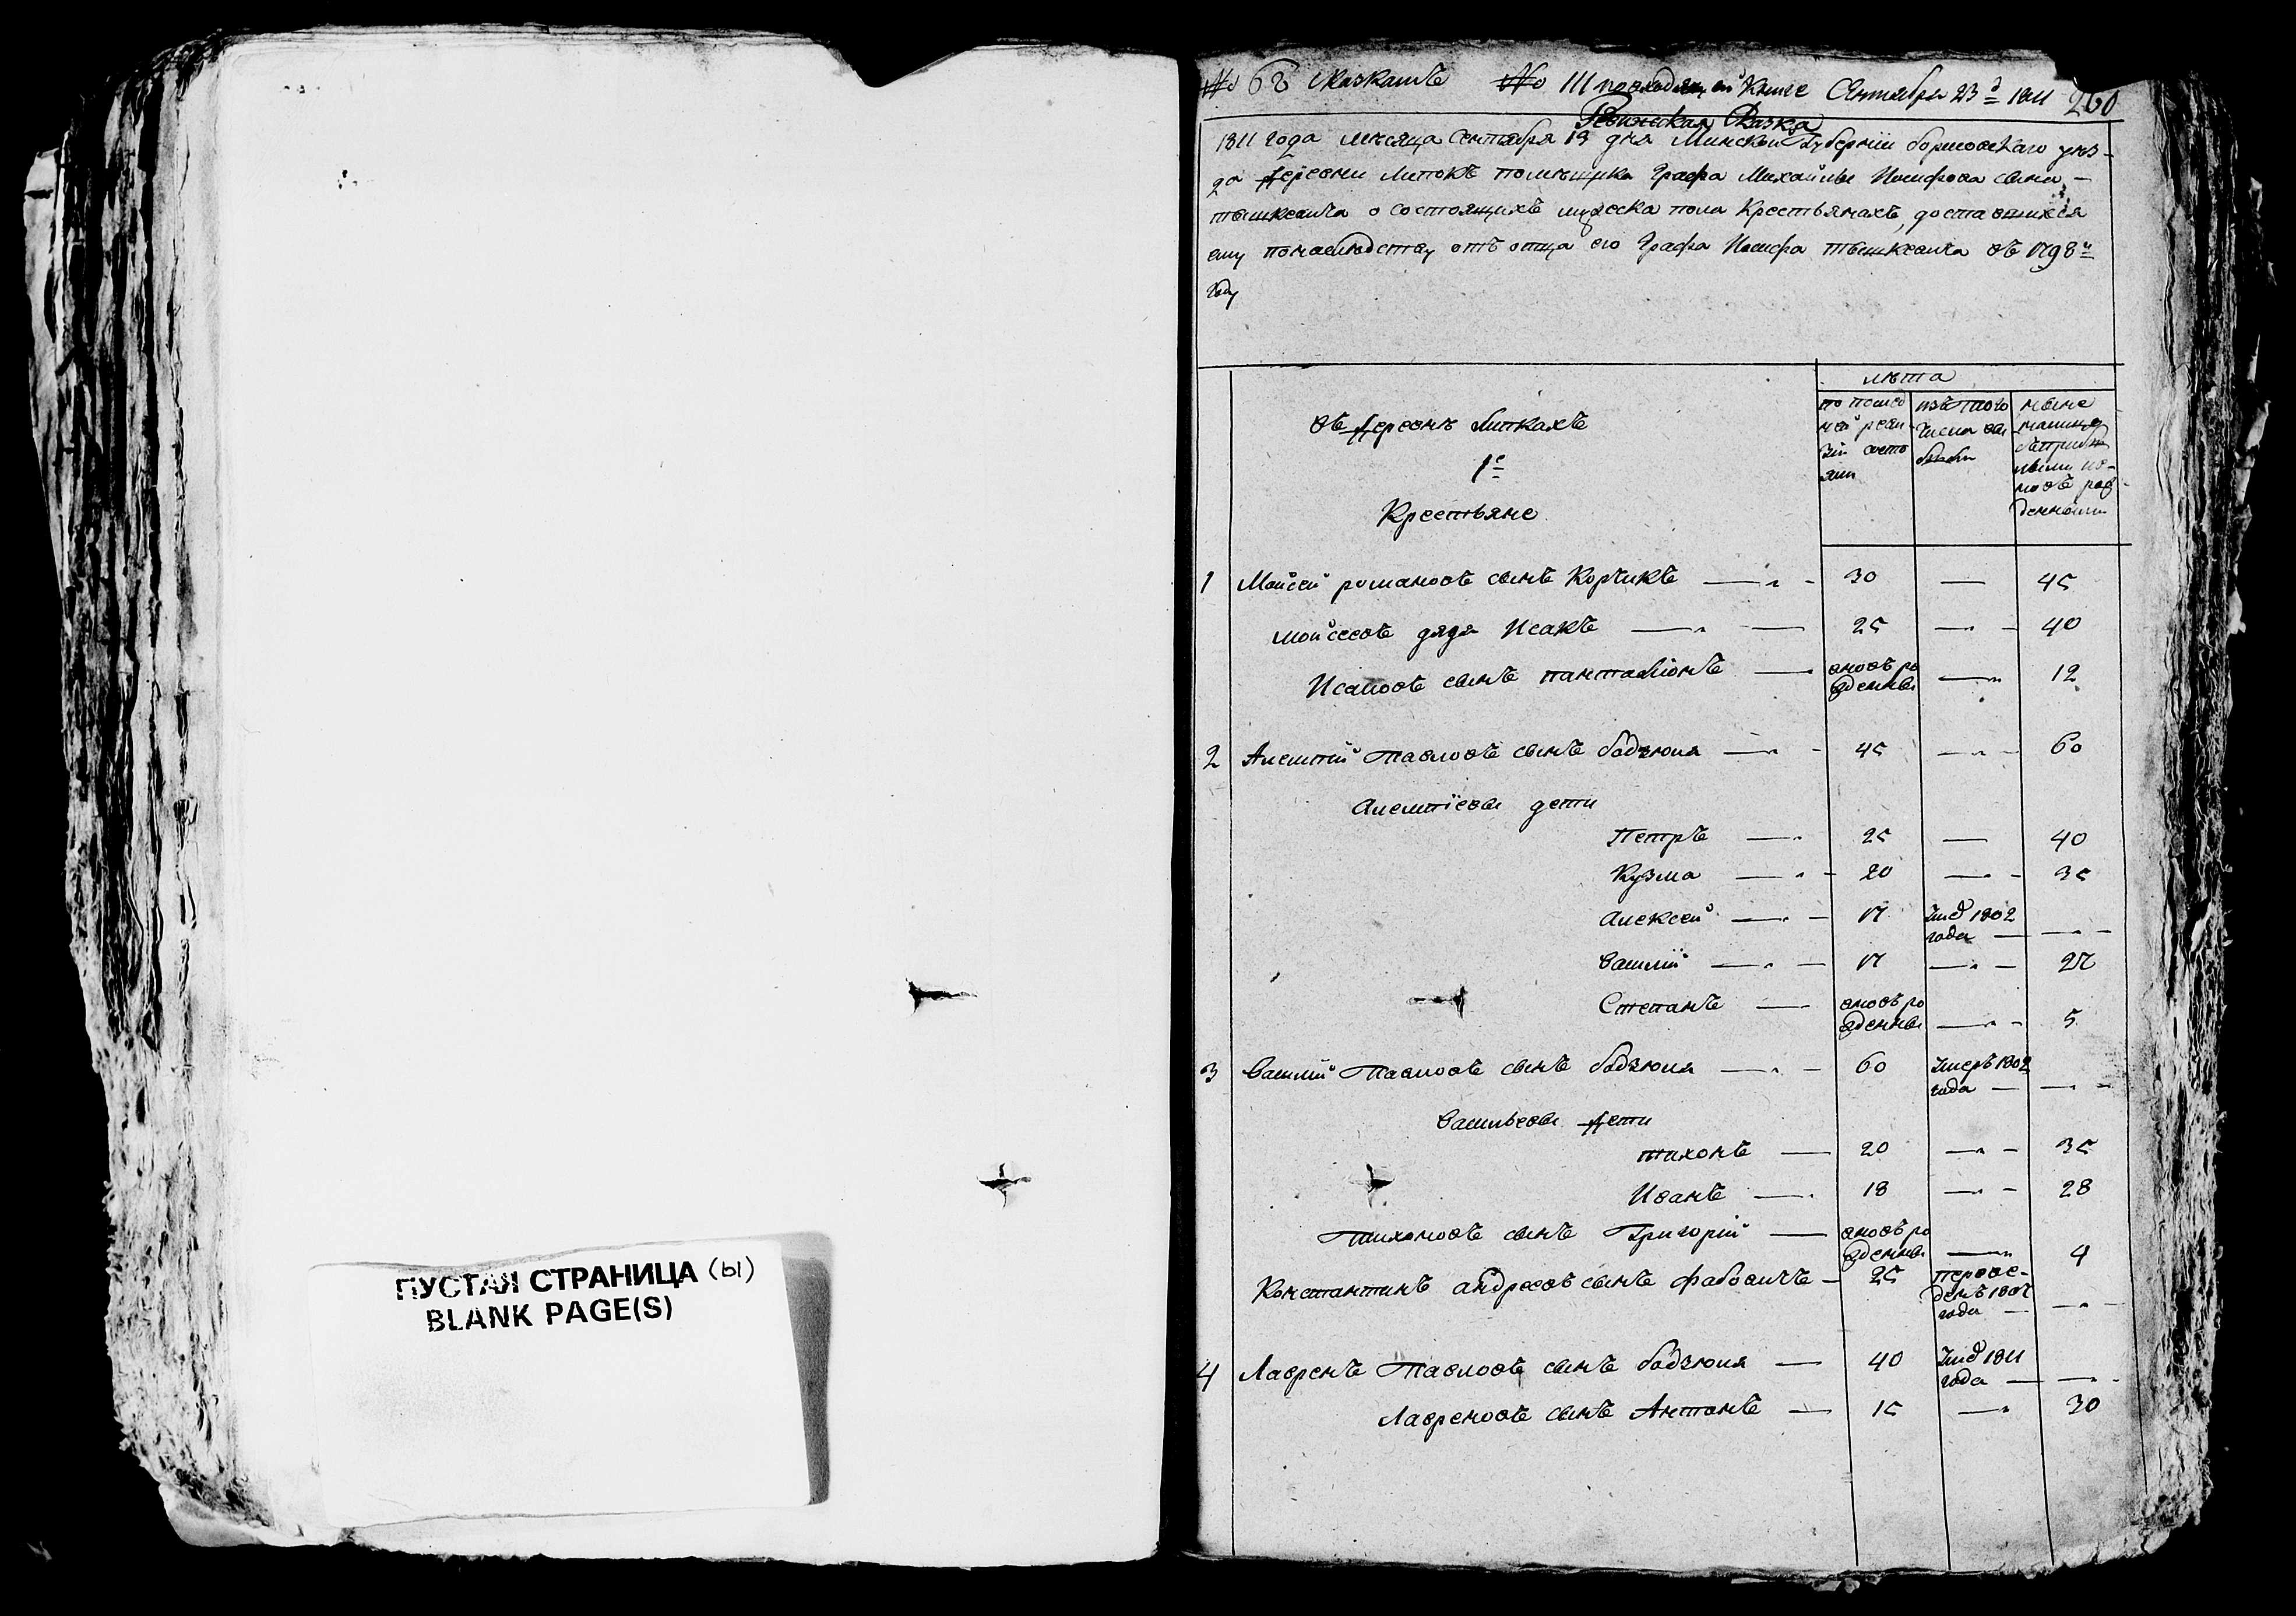 ПУСТАЯ СТРАНИЦА (ы)
BLANK PAGE(S)
№ 68 № 111 по входящей книге Сентября 23 д 1811 260
Ревижская Сказка
1811 года месяца Сентября 19 дня Минской Губернии борисовскаго уез-
да деревни Липокъ помещика Графа Михайлы Иосифова сына
тышкевича о состоящихъ мужеска пола Крестьянахъ, доставшихся
ему понаследству отъ отца его Графа Иосифа тышкевича въ 1798м
году
лета
въ деревнѣ Липкахъ
1е
Крестьяне
по послед
ней реви
зіи состо
яли
изъ того
числа вы
были
ныне
налицо
1 Мойсей романовъ сынъ Корчикъ 30 — 45
мойсеевъ дядя Исакъ 25 — 40
Исаковъ сынъ панталіонъ вновь ро
жденны — 12
2 Алемпій Павловъ сынъ бадзюля 45 — 60
Алемпіевы дети
Петръ 25 — 40
Кузма 20 — 35
Алексей 17 1802
года —
Василій 17 — 27
Степанъ вновь ро
жденны — 5
3 Василій Павловъ сынъ бадзюля 60 Умеръ 1802
года —
Васильевы дети
тихонъ 20 — 35
Иванъ 18 — 28
Тихоновъ сынъ Григорій вновь ро
жденны — 4
Константинъ андреевъ сынъ фабовичъ 25 переве-
денъ 1807
года —
4 Лавренъ Павловъ сынъ бадзюля 40 1811
года —
Лавреновъ сынъ Антонъ 15 — 30